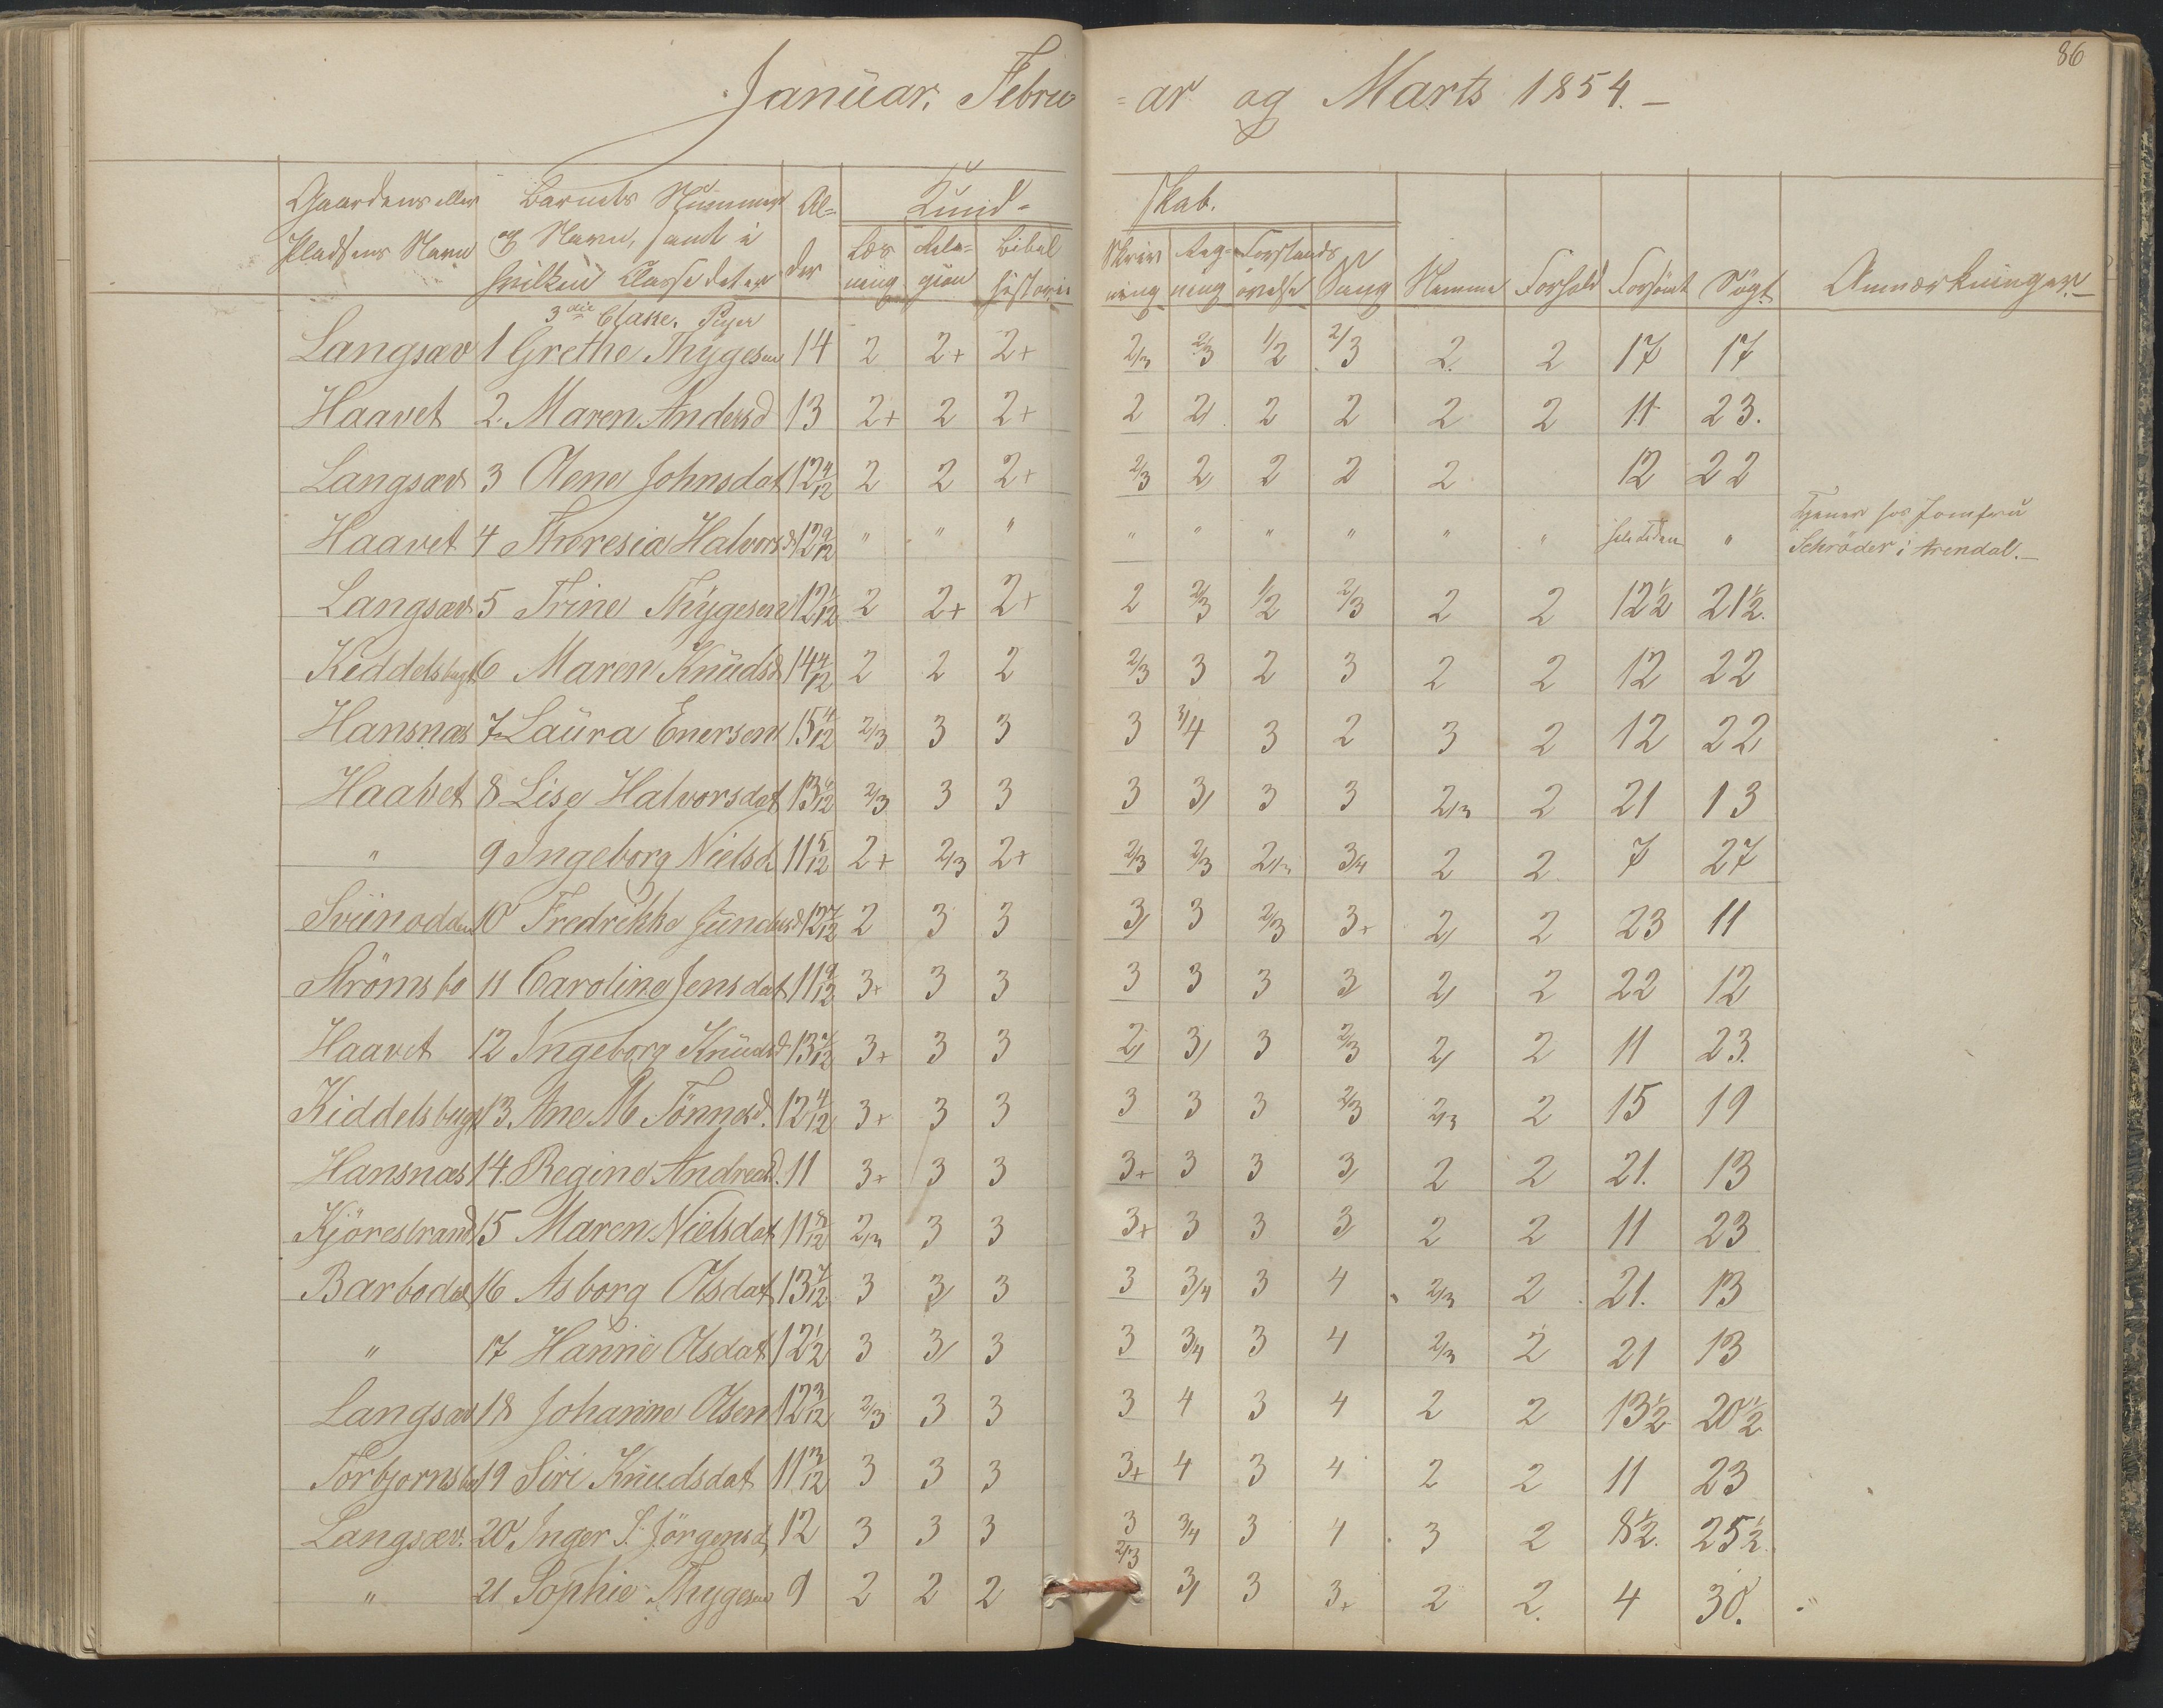 86
Januar, Febru=ar og Marts 1854.
Gaardens eller Pladsens Navn | Barnets Nummer og Navn, samt i hvilken Classe det er | Alder | Kundskab. | Nemme | Forhold | Forsömt | Sögt | Anmærkninger
Læsning | Religion | Bibelhistorie | Skrivning | Regning | Forstandsövelse | Sang
3die Classe. Piger
Langsæv 1 Grethe Thygesen 14 2 2+ 2+ 2/3 2/3 1/2 2/3 2 2 17 17
Haavet 2. Maren Andersd 13 2+ 2 2+ 2 2/ 2 2 2 2 11 23.
Langsæv 3 Olene Johnsdat 12 4/12 2 2 2+ 2/3 2 2 2 2 12 22
Haavet 4 Theresia Halvorsd 12 9/12 " " " " " " " " " hele tiden " Tjener hos Jomfru
Schröder i Arendal.
Langsæv 5 Trine Thygesen 12 1/12 2 2+ 2+ 2 2/3 1/2 2/3 2 2 12 1/2 21 1/2.
Kiddelsbugt 6 Maren Knudsd 14 4/12 2 2 2 2/3 3 2 3 2 2 12 22
Hansnæs 7 Laura Enersen 15 4/12 2/3 3 3 3 3/4 3 2 3 2 12 22
Haavet 8 Lise Halvorsdat 13 1/12 2/3 3 3 3 3/ 3 3 2/3 2 21 13
" 9 Ingeborg Nielsd. 11 5/12 2+ 2/3 2+ 2/3 2/3 2/3 3/4 2 2 7 27
Sviinodden 10 Fredrikke Gundersd 12 7/12 2 3 3 3/ 3 2/3 3+ 2/ 2 23 11
Strömsbo 11 Caroline Jensdat 11 9/12 3+ 3 3 3 3 3 3/ 2/ 2 22 12
Haavet 12 Ingeborg Knudsd 13 7/12 3+ 3 3 2/ 3/ 3 2/3 2/ 2 11 23.
Kiddelsbugt 13. Ane M Tönnesd. 12 4/12 3+ 3 3 3 3 3 2/3 2/3 2 15 19
Hansnæs 14. Regine Andreasd. 11 3+ 3 3 3+ 3 3 3/ 2 2 21. 13
Kjörestrand 15 Maren Nielsdat 11 8/12 2/3 3 3 3+ 3 3 3/ 2 2 11 23
Barbodal 16 Asborg Olsdat 13 7/12 3 3/ 3 3 3/4 3 4 2/3 2 21. 13
" 17 Hanne Olsdat 12 1/2 3 3/ 3 3 3/4 3 4 2/3 2 21 13
Langsæv 18 Johanne Olsen 12 3/12 2/3 3 3 3 4 3 4 2 2 13 1/2 20 1/2
Torbjornsbo 19 Siri Knudsdat 11 3/12 3 3 3 3+ 4 3 4 2 2 11 23
Langsæv. 20. Inger S. Jörgensd, 12 3 3 3 3 3/4 3 4 3 2 8 1/2. 25 1/2.
" 21 Sophie Thygesen 9 2 2 2 2/3 3/ 3 3+ 2 2. 4 30.